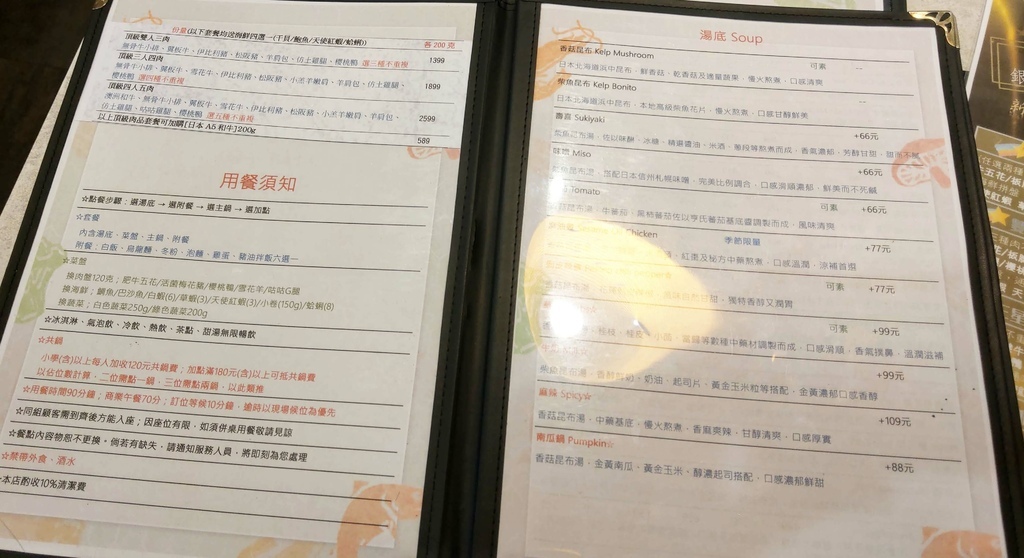 份量(以下套餐均送海鮮四選一(干貝/鮑魚/天使紅蝦/蛤蜊)) 各200克
頂級雙人三肉
無骨牛小排、翼板牛、伊比利豬、松阪豬、羊肩包、仿土雞腿、櫻桃鴨 選三種不重複 1399
頂級三人四肉
無骨牛小排、翼板牛、雪花牛、伊比利豬、松阪豬、小羔羊嫩肩、羊肩包、仿土雞腿、
櫻桃鴨 選四種不重複 1899
頂級四人五肉
澳洲和牛、無骨牛小排、翼板牛、雪花牛、伊比利豬、松阪豬、小羔羊嫩肩、羊肩包、
仿土雞腿、咕咕雞腿、櫻桃鴨 選五種不重複 2599
以上頂級肉品套餐可加購[日本A5和牛]200g 589
用餐須知
☆點餐步驟：選湯底 → 選附餐 → 選主鍋 → 選加點
☆套餐
內含湯底、菜盤、主鍋、附餐
附餐：白飯、烏龍麵、冬粉、泡麵、雞蛋、豬油拌飯六選一
☆菜盤
換肉盤120克；肥牛五花/活菌梅花豬/櫻桃鴨/雪花羊/咕咕G腿
換海鮮；鯛魚/巴沙魚/白蝦(6)/草蝦(3)/天使紅蝦(3)/小卷(150g)/蛤蜊(8)
換蔬菜；白色蔬菜250g/綠色蔬菜200g
☆冰淇淋、氣泡飲、冷飲、熱飲、茶點、甜湯無限暢飲
☆共鍋
小學(含)以上每人加收120元共鍋費；加點滿180元(含)以上可抵共鍋費
以佔位數計算，二位需點一鍋，三位需點兩鍋，以此類推
☆用餐時間90分鐘；商業午餐70分；訂位等候10分鐘，逾時以現場候位為優先
☆同組顧客需到齊後方能入座；因座位有限，如須併桌用餐敬請見諒
☆餐點內容物恕不更換。倘若有缺失，請通知服務人員，將即刻為您處理
☆禁帶外食、酒水
☆本店酌收10%清潔費
湯底 Soup
香菇昆布 Kelp Mushroom 可素
日本北海道浜中昆布、鮮香菇、乾香菇及適量蔬果，慢火熬煮，口感清爽
柴魚昆布 Kelp Bonito
日本北海道浜中昆布、本地高級柴魚花片，慢火熬煮，口感甘醇鮮美
壽喜 Sukiyaki +66元
柴魚昆布湯，佐以味醂、冰糖、精選醬油、米酒、蔥段等熬煮而成，香氣濃郁，芳醇甘甜，甜而不膩
味噌 Miso +66元
柴魚昆布湯，搭配日本信州札幌味噌，完美比例調合，口感滑順濃郁，鮮美而不死鹹
Tomato 可素 +66元
昆布湯，牛番茄、黑柿番茄佐以亨氏番茄基底醬調製而成，風味清爽
Chicken 季節限量 +77元
紅棗及秘方中藥熬煮，口感溫潤，涼補首選
可素 +77元
獨特香醇又潤胃
可素 +99元
等數種中藥材調製而成，口感滑順，香氣撲鼻，溫潤滋補
+99元
柴魚昆布湯、奶油、起司片、黃金玉米粒等搭配，金黃濃郁口感香醇
麻辣 Spicy☆ +109元
香菇昆布湯，中藥基底，慢火熬煮，香麻爽辣，甘醇清爽，口感厚實
南瓜鍋 Pumpkin☆ +88元
香菇昆布湯，金黃南瓜、黃金玉米、醇濃起司搭配，口感濃郁鮮甜